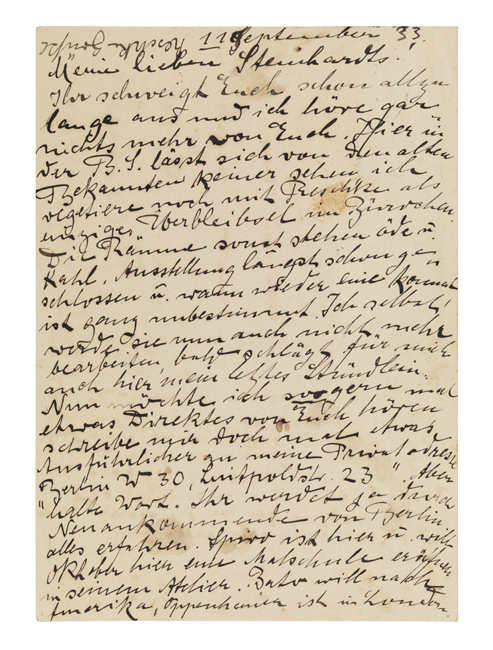 11 September 33.
Meine lieben Steinhardts!
Ihr schweigt Euch schon allzu
lange aus und ich höre gar
nichts mehr von Euch. Hier in
der B. S. lässt sich von den alten
Bekannten keiner sehen, ich
vegetiere noch mit Preschke als
einziges Überbleibsel im Bürochen.
Die Räume sonst stehen öde u.
kahl. Ausstellung längst schon ge-
schlossen u. wann wieder eine kommt
ist ganz unbestimmt. Ich selbst
werde sie nun auch nicht mehr
bearbeiten, bald schlägt für mich
auch hier mein letztes Stündlein.
Nun möchte ich so gern mal
etwas Direktes von Euch hören
schreibe mir doch mal etwas
Ausführlicher an meine Privatadresse
Berlin W 30, Luitpoldstr. 23 ". Aber
"letzte Wort. Ihr werdet ja durch
Neuankommende von Berlin
alles erfahren. Spiro ist hier u. will
Oktober hier eine Malschule eröffnen
in seinem Atelier. Bato will nach
Amerika, Oppenheimer ist in London.